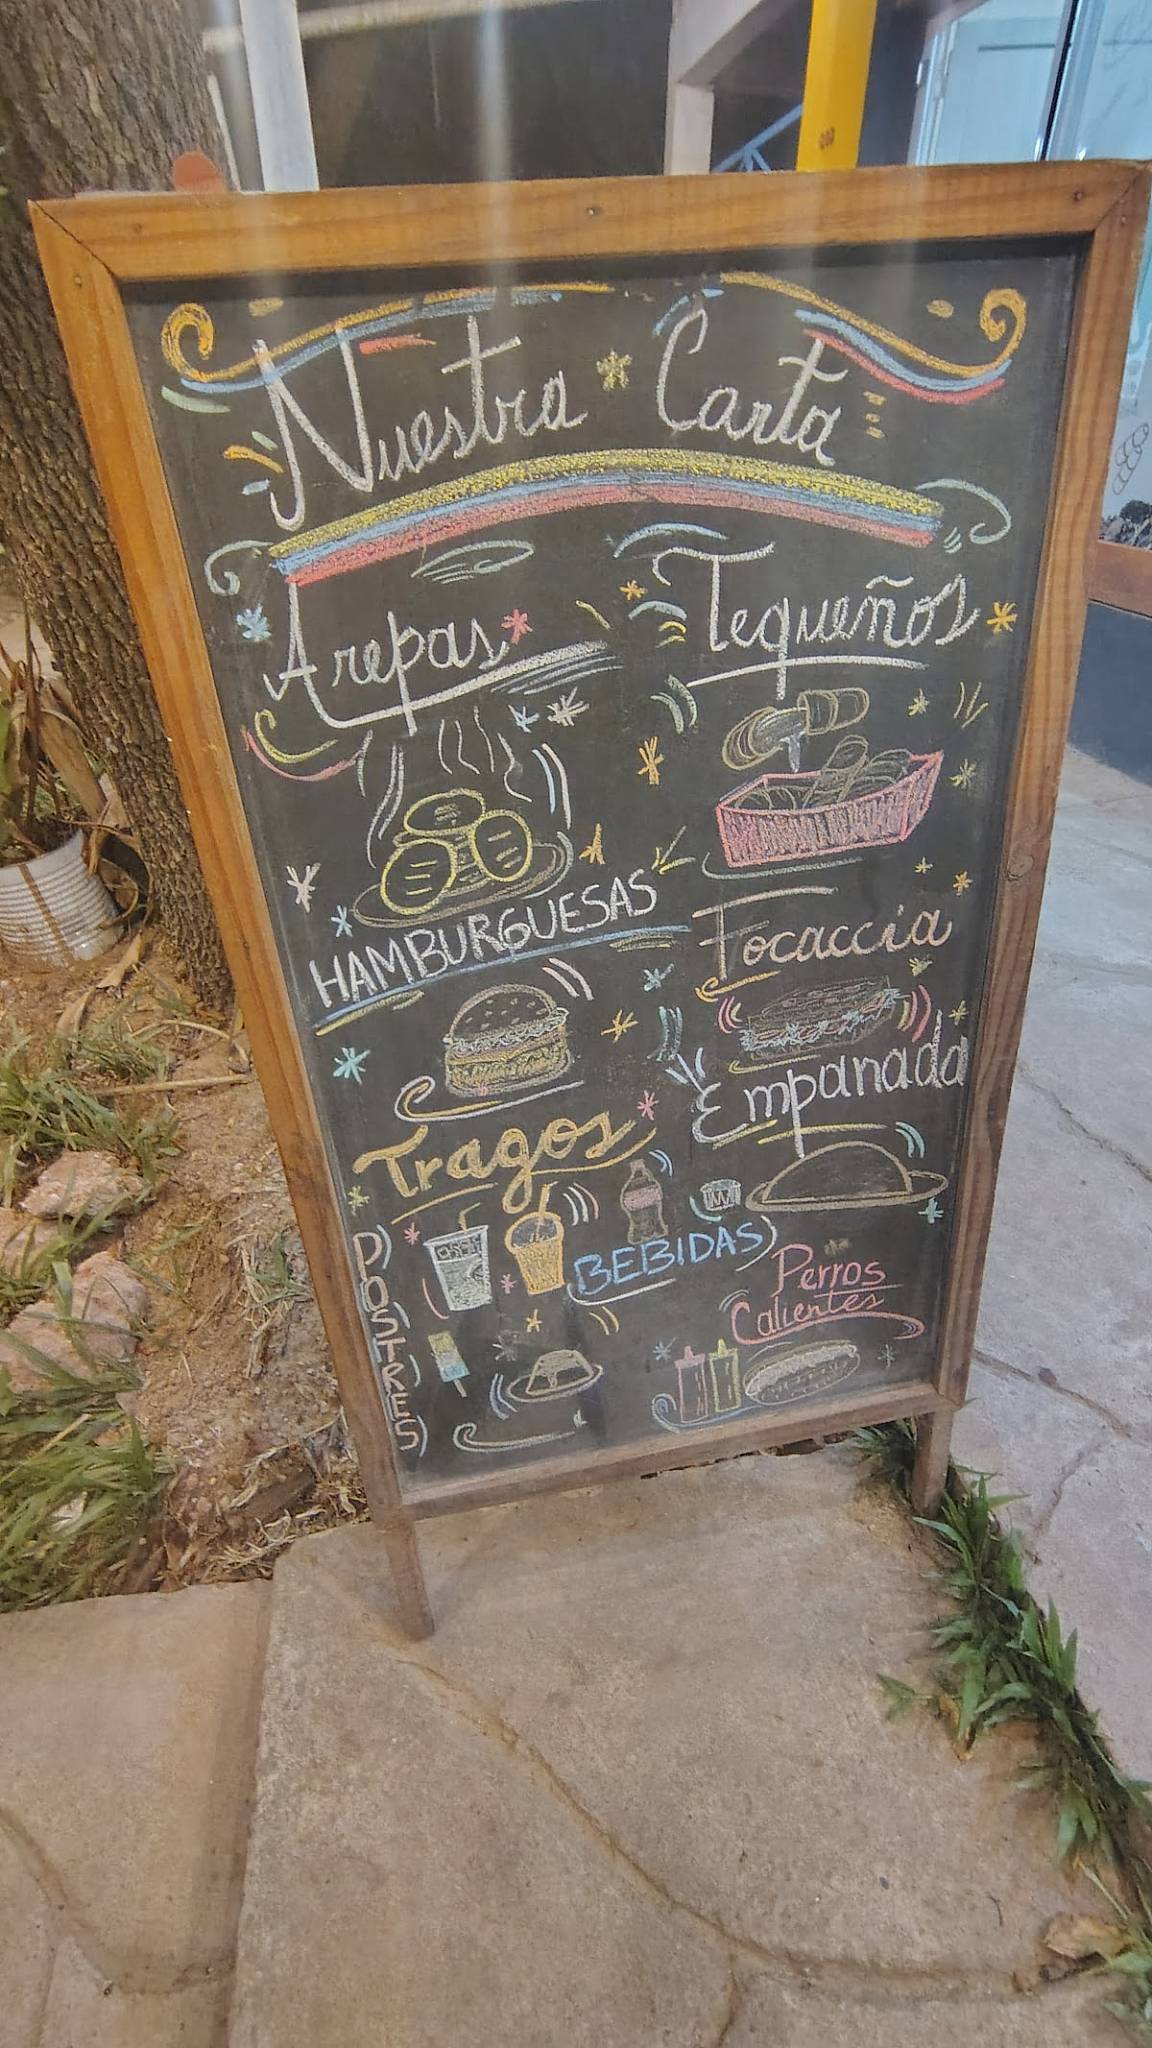 Nuestra Carta
Arepas
Tequeños
HAMBURGUESAS
Focaccia
Empanada
Tragos
BEBIDAS
Perros
Calientes
POSTRES